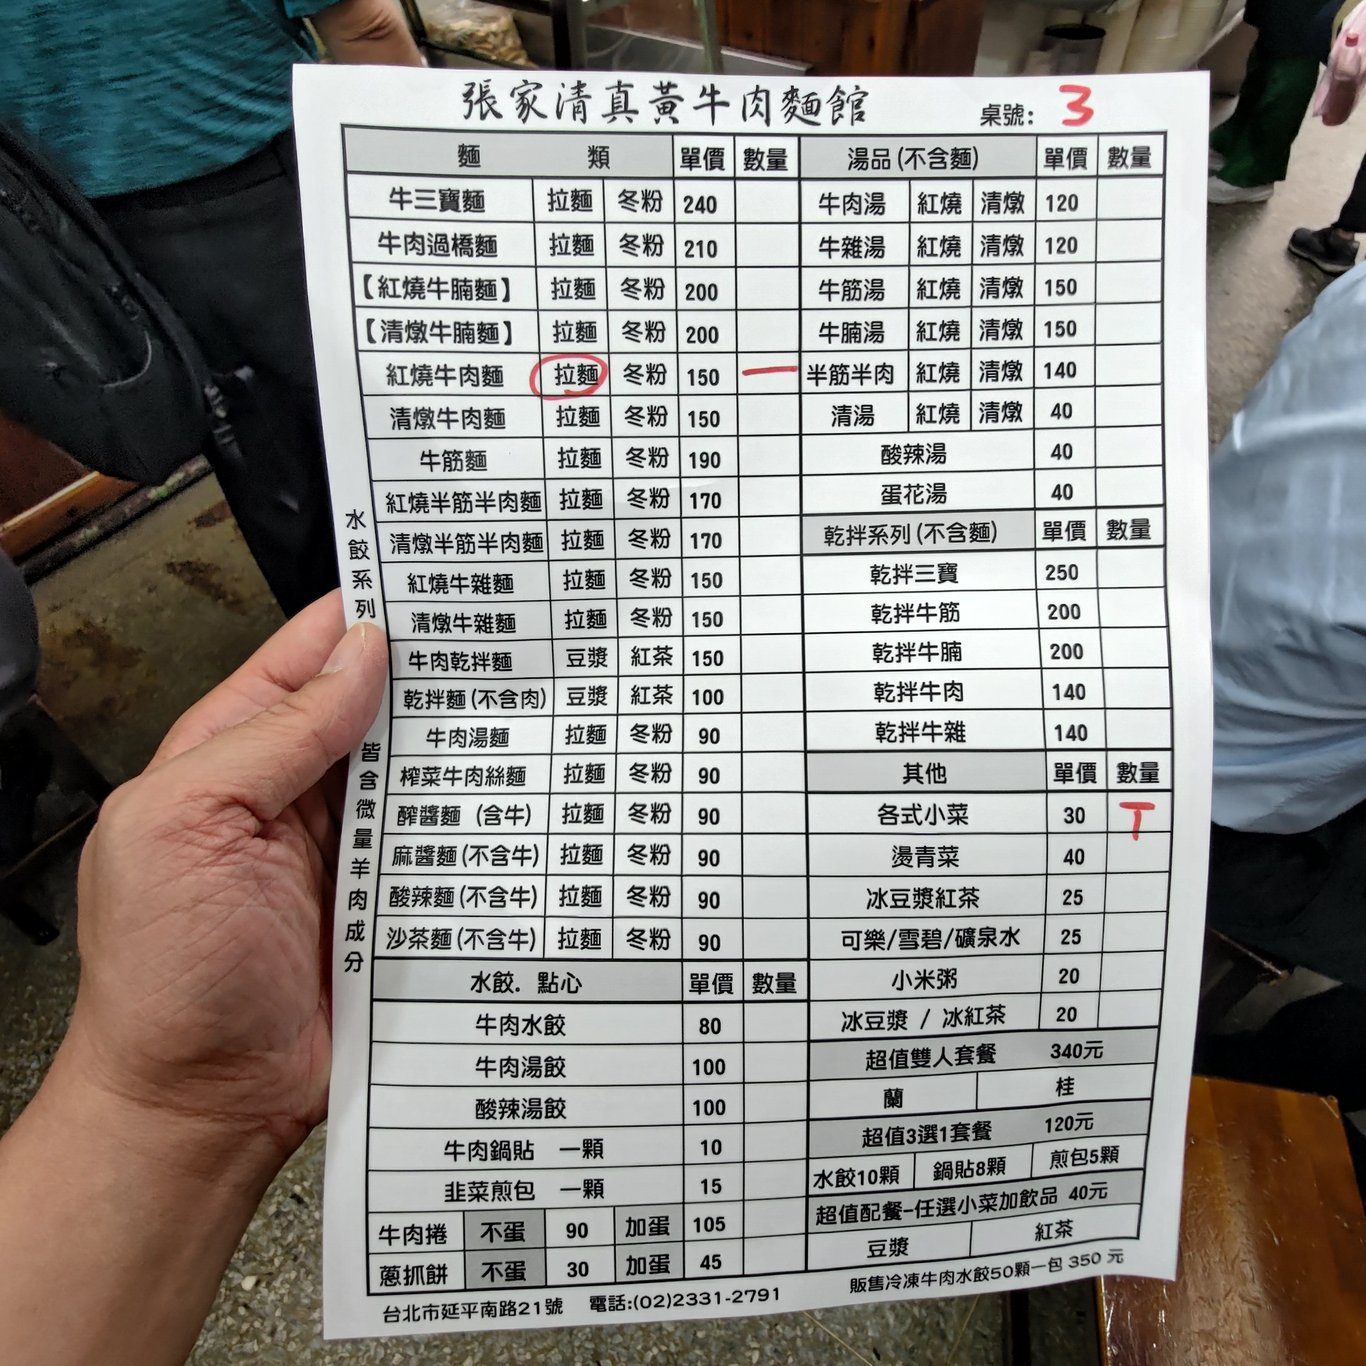 張家清真黃牛肉麵館
桌號: 3
麵 類 單價 數量
牛三寶麵 拉麵 冬粉 240
牛肉過橋麵 拉麵 冬粉 210
【紅燒牛腩麵】 拉麵 冬粉 200
【清燉牛腩麵】 拉麵 冬粉 200
紅燒牛肉麵 拉麵 冬粉 150 一
清燉牛肉麵 拉麵 冬粉 150
牛筋麵 拉麵 冬粉 190
紅燒半筋半肉麵 拉麵 冬粉 170
清燉半筋半肉麵 拉麵 冬粉 170
紅燒牛雜麵 拉麵 冬粉 150
清燉牛雜麵 拉麵 冬粉 150
牛肉乾拌麵 豆漿 紅茶 150
乾拌麵(不含肉) 豆漿 紅茶 100
牛肉湯麵 拉麵 冬粉 90
榨菜牛肉絲麵 拉麵 冬粉 90
醡醬麵 (含牛) 拉麵 冬粉 90
麻醬麵(不含牛) 拉麵 冬粉 90
酸辣麵(不含牛) 拉麵 冬粉 90
沙茶麵(不含牛) 拉麵 冬粉 90
水餃. 點心 單價 數量
牛肉水餃 80
牛肉湯餃 100
酸辣湯餃 100
牛肉鍋貼 一顆 10
韭菜煎包 一顆 15
牛肉捲 不蛋 90 加蛋 105
蔥抓餅 不蛋 30 加蛋 45
水餃系列 皆含微量羊肉成分
湯品(不含麵) 單價 數量
牛肉湯 紅燒 清燉 120
牛雜湯 紅燒 清燉 120
牛筋湯 紅燒 清燉 150
牛腩湯 紅燒 清燉 150
半筋半肉 紅燒 清燉 140
清湯 紅燒 清燉 40
酸辣湯 40
蛋花湯 40
乾拌系列(不含麵) 單價 數量
乾拌三寶 250
乾拌牛筋 200
乾拌牛腩 200
乾拌牛肉 140
乾拌牛雜 140
其他 單價 數量
各式小菜 30 T
燙青菜 40
冰豆漿紅茶 25
可樂/雪碧/礦泉水 25
小米粥 20
冰豆漿 / 冰紅茶 20
超值雙人套餐 340元
蘭 桂
超值3選1套餐 120元
水餃10顆 鍋貼8顆 煎包5顆
超值配餐-任選小菜加飲品 40元
豆漿 紅茶
台北市延平南路21號 電話:(02)2331-2791
販售冷凍牛肉水餃50顆一包 350 元